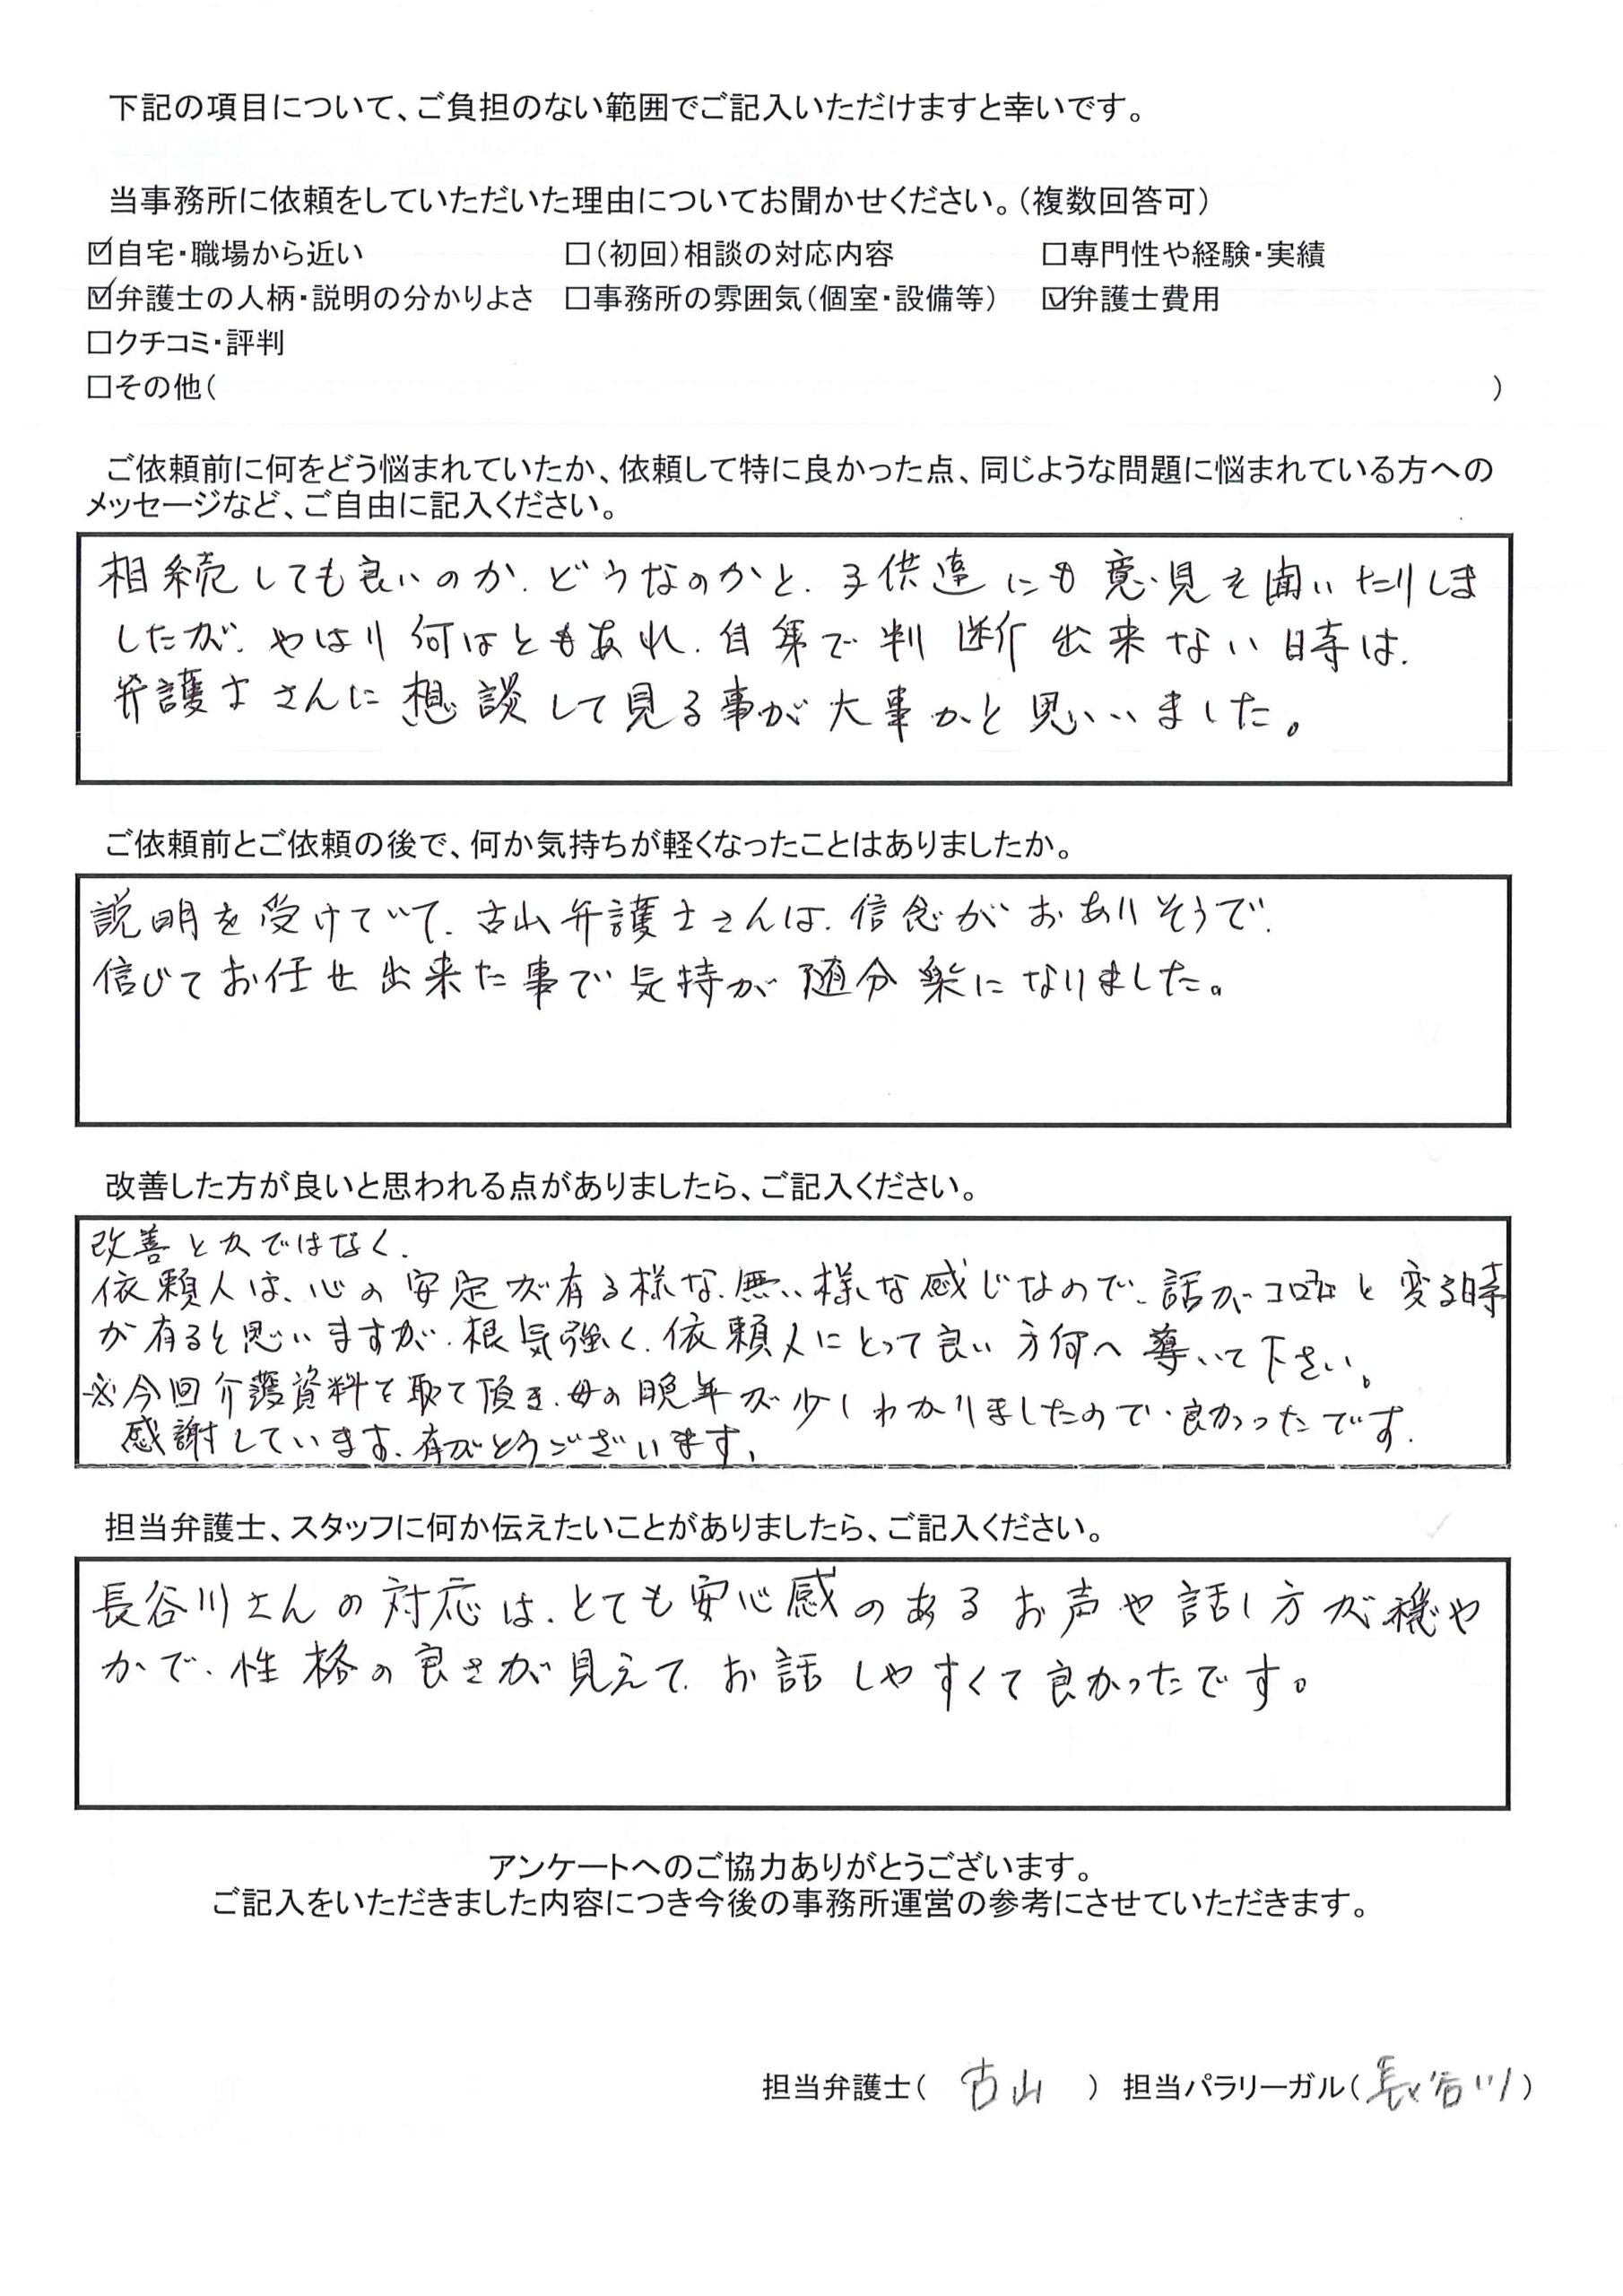 下記の項目について、ご負担のない範囲でご記入いただけますと幸いです。
当事務所に依頼をしていただいた理由についてお聞かせください。(複数回答可)
☑自宅・職場から近い □(初回)相談の対応内容 □専門性や経験・実績
☑弁護士の人柄・説明の分かりよさ □事務所の雰囲気(個室・設備等) ☑弁護士費用
□クチコミ・評判
□その他( )
ご依頼前に何をどう悩まれていたか、依頼して特に良かった点、同じような問題に悩まれている方への
メッセージなど、ご自由に記入ください。
相続しても良いのか、どうなのかと、子供達にも意見を聞いたりしま
したが、やはり何はともあれ、自身で判断出来ない時は、
弁護士さんに想談して見る事が大事かと思いました。
ご依頼前とご依頼の後で、何か気持ちが軽くなったことはありましたか。
説明を受けていて、古山弁護士さんは、信念がおありそうで、
信じてお任せ出来た事で気持が随分楽になりました。
改善した方が良いと思われる点がありましたら、ご記入ください。
改善とかではなく、
依頼人は、心の安定が有る様な、無い様な感じなので、話がコロコロと変る時
が有ると思いますが、根気強く、依頼人にとって良い方何へ導いて下さい。
※今回介護資料を取て頂き、母の晩年が少しわかりましたので、良かったです。
感謝しています、有がとうございます。
担当弁護士、スタッフに何か伝えたいことがありましたら、ご記入ください。
長谷川さんの対応は、とても安心感のあるお声や話し方が穏や
かで、性格の良さが見えて、お話しやすくて良かったです。
アンケートへのご協力ありがとうございます。
ご記入をいただきました内容につき今後の事務所運営の参考にさせていただきます。
担当弁護士( 古山 ) 担当パラリーガル(長谷川)